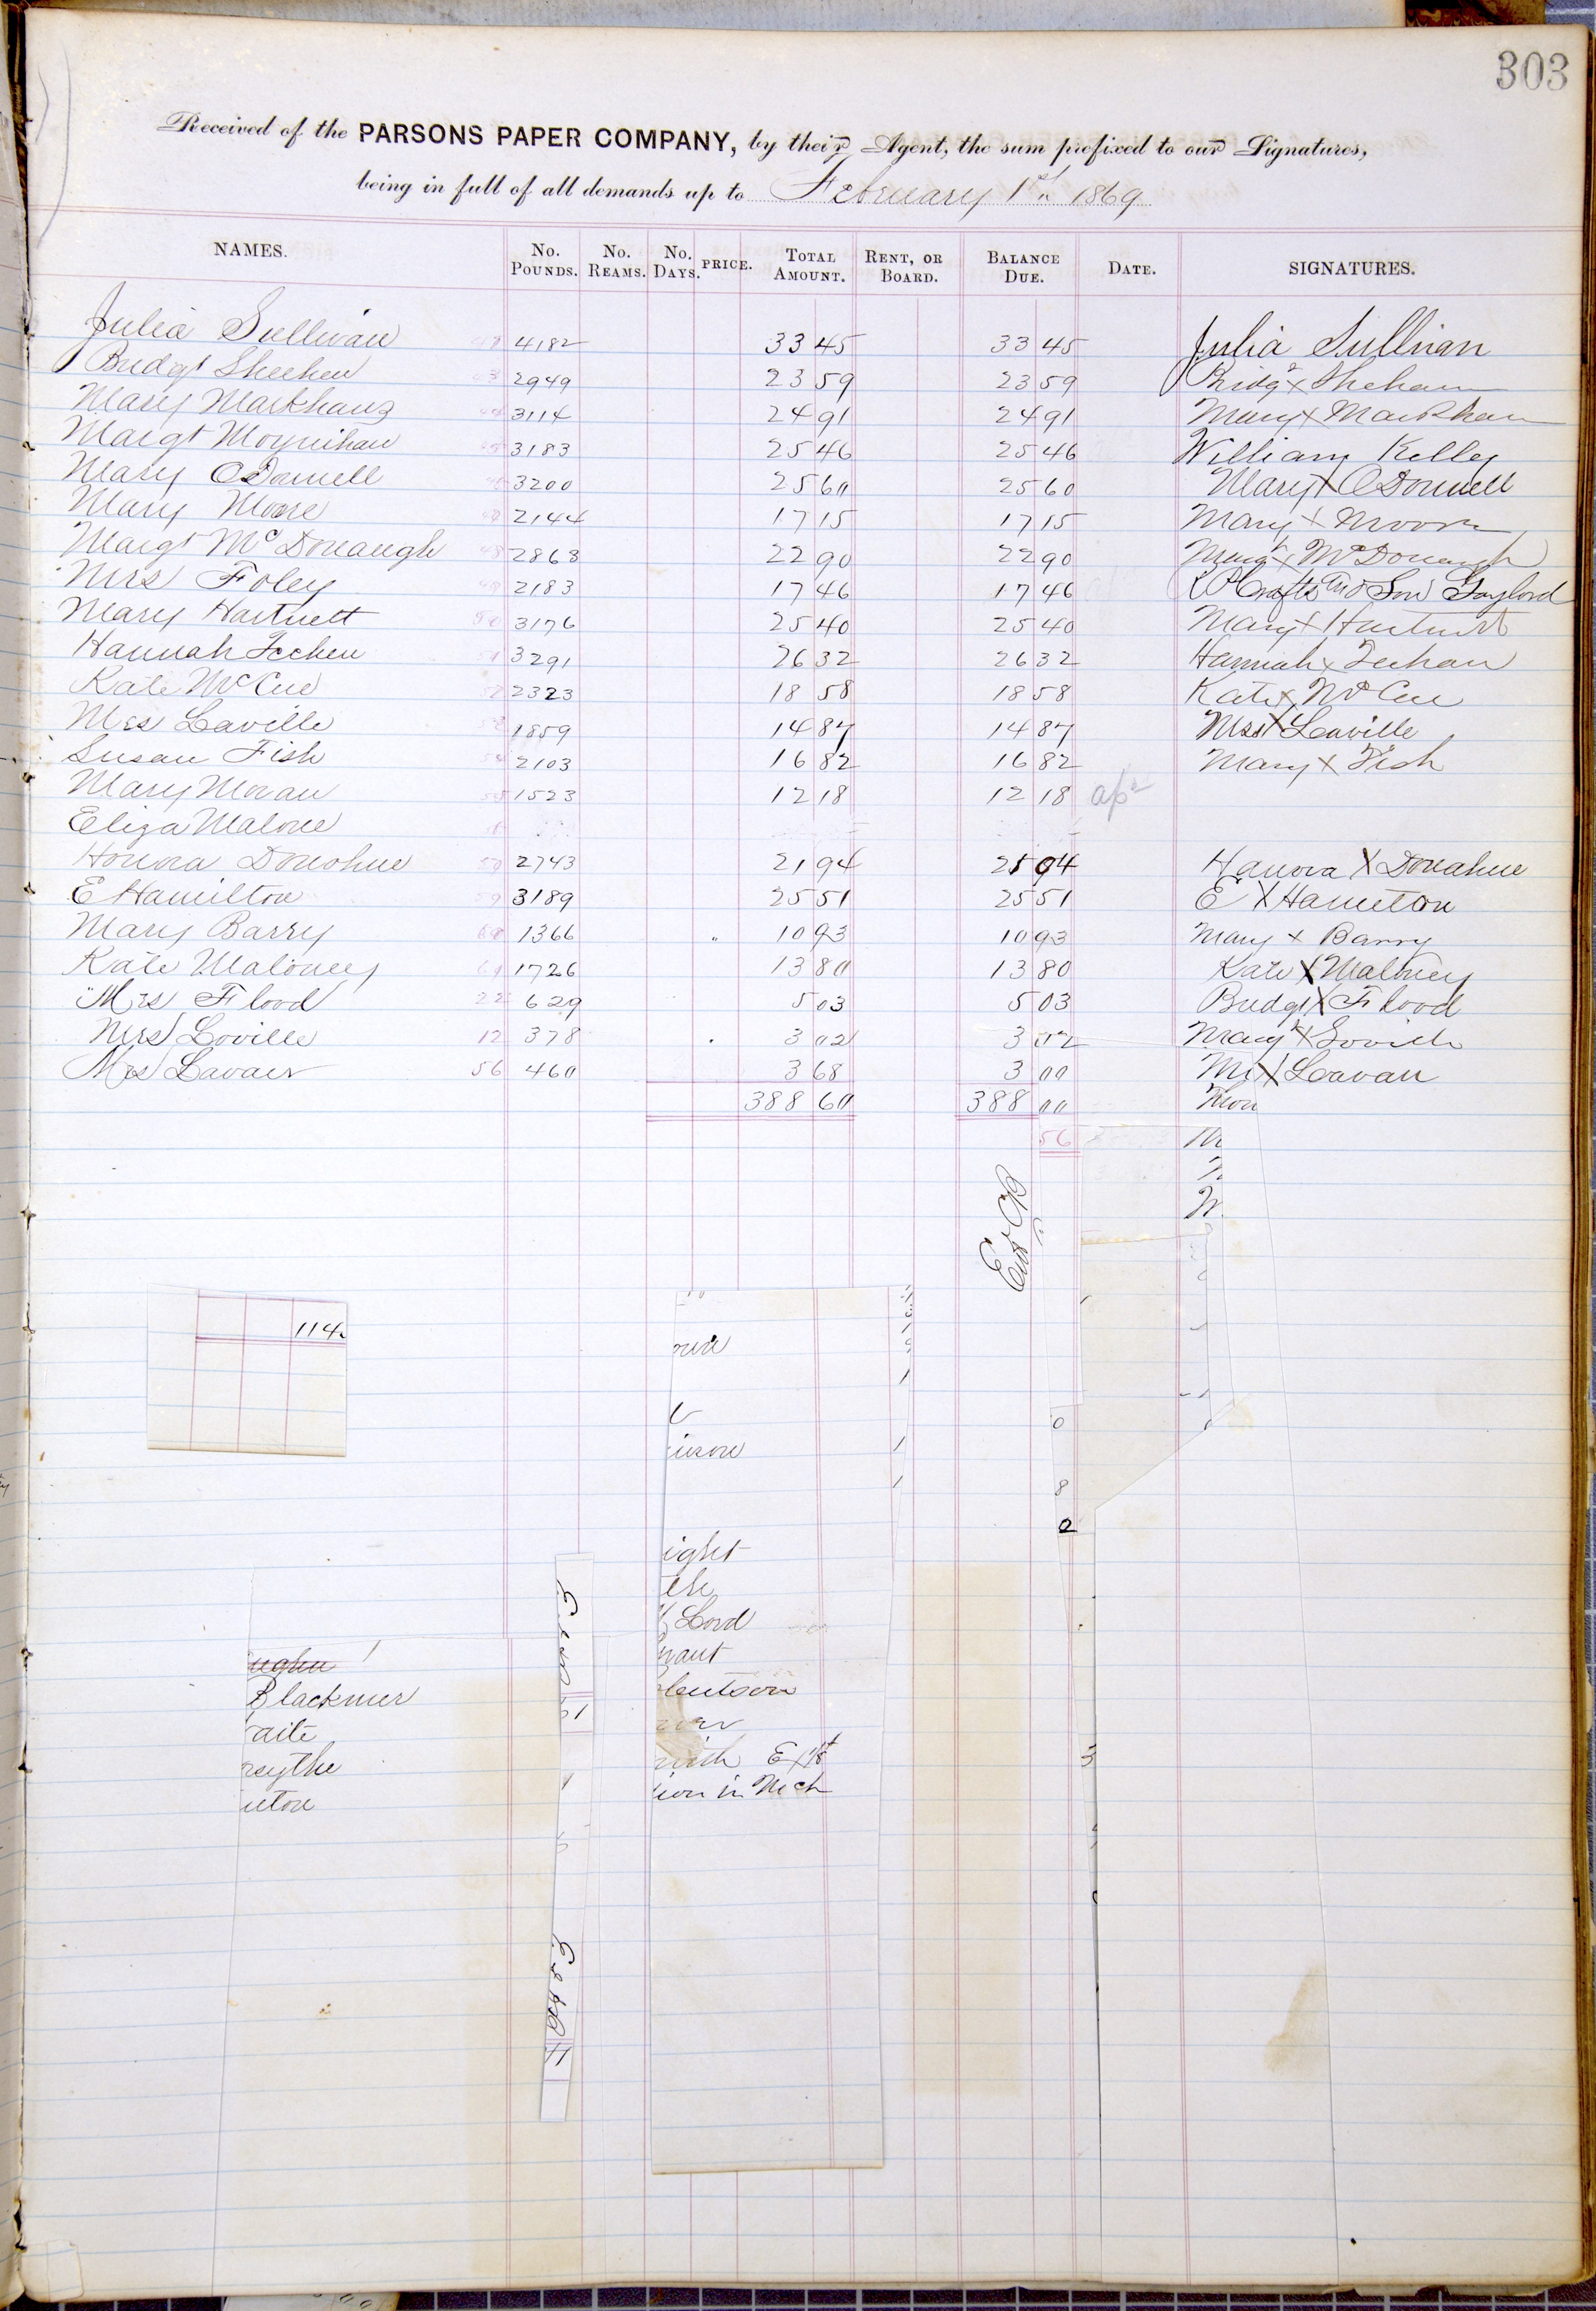 303
Received of the PARSONS PAPER COMPANY, by their Agent, the sum prefixed to our Signatures,
being in full of all demands up to February 1st 1869
NAMES. No. Pounds. No. Reams. No. Days. PRICE. Total Amount. Rent, or Board. Balance Due. Date. SIGNATURES.
Julia Sullivan 4182 33 45 33 45 Julia Sullivan
Bridgt Sheehen 2949 23 59 23 59 Bridgt x Sheham
Mary Markham 3114 24 91 24 91 Mary x Markham
Margt Moynihan 3183 25 46 25 46 William Kelley
Mary ODonnell 3200 25 60 25 60 Mary X ODonnell
Mary Moore 2144 17 15 17 15 Mary x Moore
Margt McDonaugh 48 2863 22 90 22 90 Margt x McDonaugh
Mrs Foley 2183 17 46 17 46 R P Crafts and Son Gaylord
Mary Hartnett 50 3176 25 40 25 40 Mary x Hartnett
Hannah Feehen 51 3291 26 32 26 32 Hannah x Feehan
Kate McCue 52 2323 18 58 18 58 Kate x McCue
Mrs Laville 1859 14 87 14 87 Mrs X Laville
Susan Fish 54 2103 16 82 16 82 Mary x Fish
Mary Moran 55 1523 12 18 12 18
Eliza Malone
Honora Donohue 2743 21 94 21 94 Hanora X Donahue
E Hamilton 59 3189 25 51 25 51 E X Hamilton
Mary Barry 60 1366 " 10 93 10 93 Mary x Barry
Kate Maloney 61 1726 13 80 13 80 Kate X Maloney
Mrs Flood 22 629 5 03 5 03 Bridgt X Flood
Mrs Loville 12 378 3 02 3 02 Mary x Loville
Mrs Lavaer 56 460 3 68 3 00 Mrs X Lavaer
388 60 388 00
56
114
0
8
2
ight
Lord
Blackmer
3
in Mch